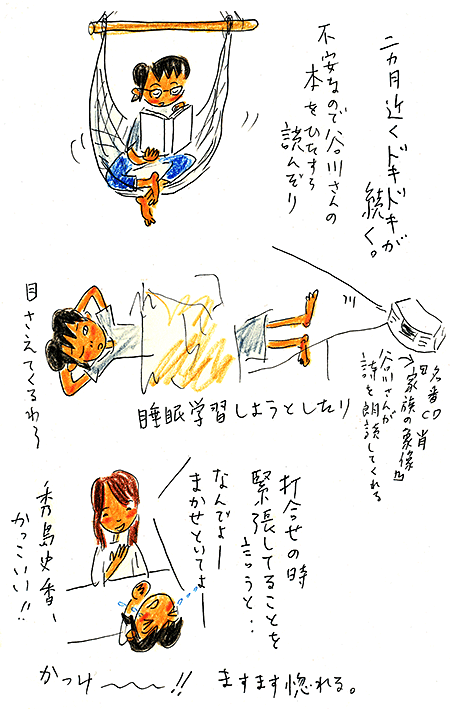 二カ月近くドキドキが
続く。
不安なので谷川さんの
本をひたすら
読んだり
睡眠学習しようとしたり
名番CD
家族の肖像
谷川さんが
詩を朗読してくれる
目さえてくるわ〜
打合せの時
緊張してることを
言うと…
なんでよー
まかせといてよー
秀島史香、
かっこいい!!
かっけ〜〜!!
ますます惚れる。